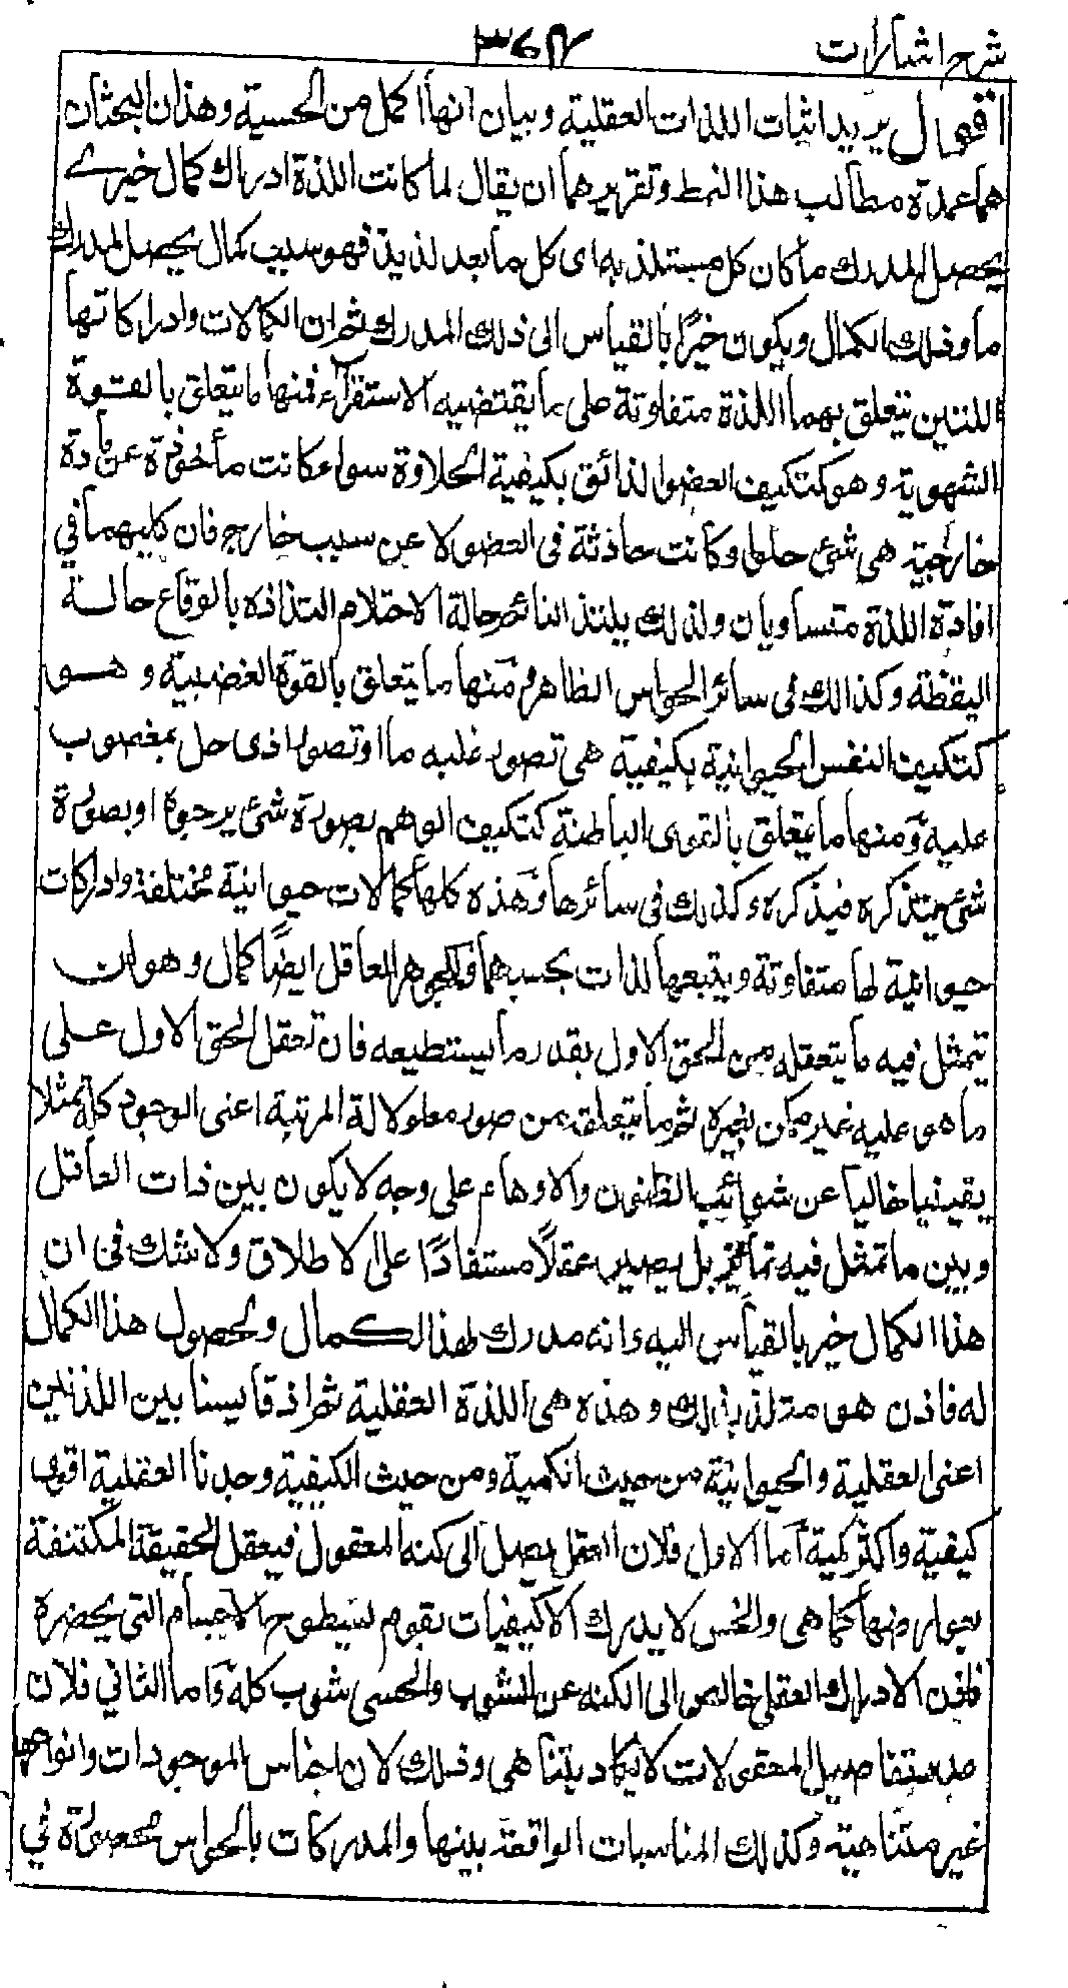 شرح اشارات
٣٦٢
اقول يريد اثبات اللذات العقلية وبيان انها اكمل من الحسية وهذان البحثان
هما عمدة مطالب هذا النمط وتقريرهما ان يقال لما كانت اللذة ادراك كمال خيرے
يحصل للمدرك ما كان كل مستلذ به اى كل ما يعد لذيذ فهو سبب كمال يحصل للمدرك
ما وذلك الكمال ويكون خيرًا بالقياس الى ذلك المدرك ثم ان الكمالات وادراكاتها
اللتين يتعلق بهما اللذة متفاوتة على ما يقتضيه الاستقرآء فمنها ما يتعلق بالقوة
الشهوية وهو كتكيف العضو الذائق بكيفية الحلاوة سواء كانت مأخوذة عن مادة
خارجية هى شئ حلو او كانت حادثة فى العضو لا عن سبب خارج فان كليهما في
افادة اللذة متساويان ولذلك يلتذ النائم حالة الاحتلام التذاذه بالوقاع حالة
اليقظة وكذالك فى سائر الحواس الظاهرة ومنها ما يتعلق بالقوة الغضبية وهو
كتكيف النفس الحيوانية بكيفية هى تصور غلبه ما او تصور اذى حل بمغضوب
عليه ومنها ما يتعلق بالقوى الباطنة كتكيف الوهم بصورة شئ يرجوه او بصورة
شئ يتذكره فيذكره وكذلك فى سائرها وهذه كلها كمالات حيوانية مختلفة وادراكات
حيوانية لها متفاوتة ويتبعها لذات بحسبهما وللجوهر العاقل ايضًا كمال وهو ان
يتمثل فيه ما يتعقله من الحق الاول بقدر ما يستطيعه فان تعقل الحق الاول على
ما هو عليه غير ممكن لغيره ثم ما يتعلقه من صور معلولاته المرتبة اعنى الوجود كله تمثلا
يقينيا خاليا عن شوائب الظنون والاوهام على وجه لا يكون بين ذات العاقل
وبين ما تمثل فيه تمايز بل يصير عقلاً مستفادًا على الاطلاق ولا شك فى ان
هذا الكمال خير بالقياس اليه وانه مدرك لهذا الكمال ولحصول هذا الكمال
له فاذن هو متلذ بذلك وهذه هى اللذة العقلية ثم اذ قايسنا بين اللذتين
اعنى العقلية والحيوانية من حيث الكمية ومن حيث الكيفية وجدنا العقلية اقوى
كيفية واكثر كمية اما الاول فلان العقل يصل الى كنه المعقول فيعقل الحقيقة المكتنفة
بعوارضها كما هى والحس لا يدرك الا كيفيات تقوم بسطوح الاجسام التى يحضره
فاذن الادراك العقلى خالص الى الكنه عن الشوب والحسى شوب كله واما الثاني فلان
عدد تفاصيل المعقولات لا يكاد يتناهى وذلك لان اجناس الموجودات وانواعها
غير متناهية وكذلك المناسبات الواقعة بينها والمدركات بالحواس محصورة في